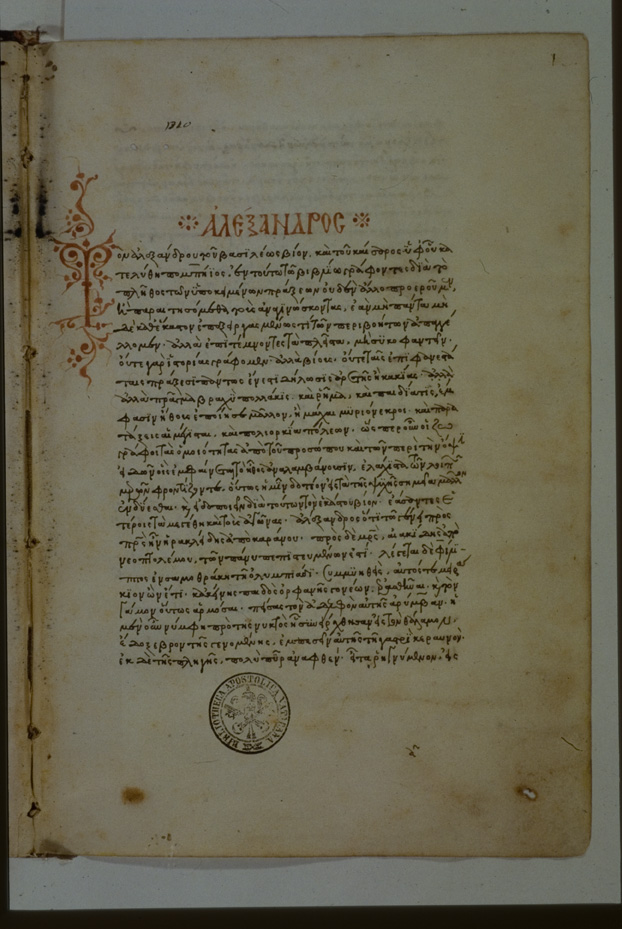 1
1310
ἈΛΕΞΑΝΔΡΟΣ
Τὸν ἀλεξάνδρου τοῦ βασιλέως βίον, καὶ τοῦ καίσαρος ὑφ' οὗ κα
τελύθη πομπήιος, ἐν τούτω τῶ βιβλίω γράφοντες διὰ τὸ
πλῆθος τῶν ὑποκειμένων πράξεων οὐδὲν ἄλλο προεροῦμεν,
ἢ παραιτησόμεθα τοὺς ἀναγινώσκοντας, ἐὰν μὴ πάντα μη
δὲ καθέκαστον ἐπεξεργασμένως τι τῶν περιβοήτων ἀπαγγέ
λλομεν· ἀλλ' ἐπιτέμνοντες τὰ πλεῖστα, μὴ συκοφαντεῖν·
οὔτε γὰρ ἱστορίας γράφομεν· ἀλλὰ βίους· οὔτε ταῖς ἐπιφανεστά
ταις πράξεσι πάντως ἔνεστι δήλωσις ἀρετῆς ἢ κακίας· ἀλλὰ
πρᾶγμα βραχὺ πολλάκις καὶ ῥῆμα, καὶ παιδιά τις, ἔμ
φασιν ἤθους ἐποίησε μᾶλλον, ἢ μάχαι μυριόνεκροι· καὶ παρα
τάξεις αἱ μέγισται, καὶ πολιορκίαι πόλεων. ὥσπερ οὖν οἱ ζω
γράφοι τὰς ὁμοιότητας ἀπὸ τοῦ προσώπου καὶ τῶν περὶ τὴν ὄψιν
εἰδῶν οἷς ἐμφαίνεται τὸ ἦθος ἀναλαμβάνουσιν, ἐλάχιστα τῶν λοιπῶν
μερῶν φροντίζοντες, οὕτως ἡμῖν δοτέον εἰς τὰ τῆς ψυχῆς σημεῖα μᾶλλον
ἐνδύεσθαι· καὶ εἰδοποιεῖν διὰ τούτων τὸν ἑκάστου βίον· ἐάσαντες ἑ
τέροις τὰ μεγέθη καὶ τοὺς ἀγῶνας· ἀλέξανδρος ὅτι τῶ γένει πρὸς
πατρὸς ἦν ἡρακλείδης ἀπὸ καράνου· πρὸς δὲ μητρὸς, αἰακίδης ἀπὸ
νεοπτολέμου, τῶν πάνυ πεπιστευμένων ἐστί· λέγεται δὲ φίλιπ
πος ἐν σαμοθράκη τῆ ὀλυμπιάδι συμμυηθεὶς, αὐτός τε μειρά
κιον ὢν ἔτι· κἀκείνης παιδὸς ὀρφανῆς γονέων, ἐρασθῆναι καὶ τὸν
γάμον οὕτως ἁρμόσαι· πείσας τὸν ἀδελφὸν αὐτῆς ἀρύμβαν· ἡ
μὲν οὖν νύμφη πρὸ τῆς νυκτὸς ἧ συνείρχθησαν εἰς τὸν θάλαμον,
ἔδοξε βροντῆς γενομένης, ἐμπεσεῖν αὐτῆς τῆ γαστρὶ κεραυνόν·
ἐκ δὲ τῆς πληγῆς, πολὺ πῦρ ἀναφθέν· εἶτα ῥηγνύμενον, εἰς
BIBLIOTHECA APOSTOLICA VATICANA